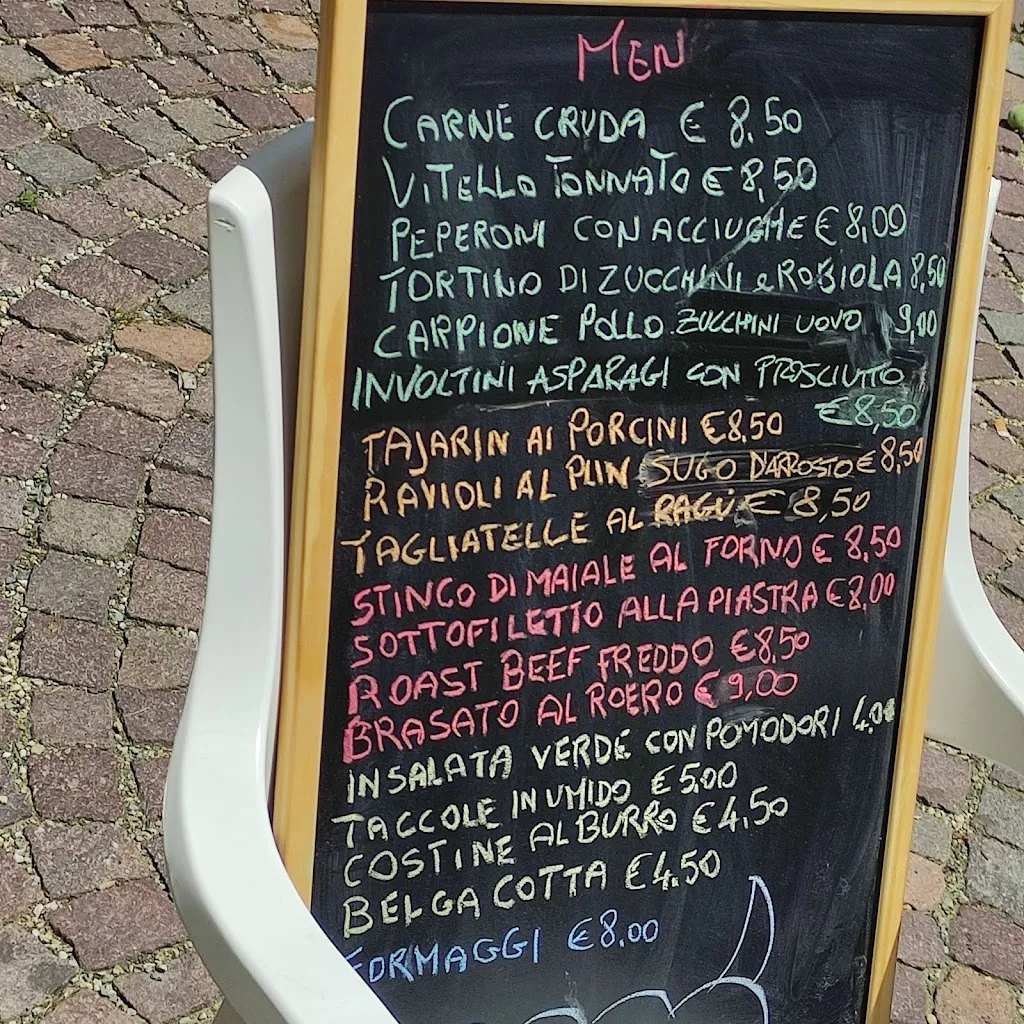 MEN
CARNE CRUDA € 8,50
VITELLO TONNATO € 8,50
PEPERONI CON ACCIUGHE € 8,00
TORTINO DI ZUCCHINI e ROBIOLA 8,50
CARPIONE POLLO ZUCCHINI UOVO 9,00
INVOLTINI ASPARAGI CON PROSCIUTTO
€ 8,50
TAJARIN AI PORCINI € 8.50
RAVIOLI AL PLIN SUGO D'ARROSTO € 8,50
TAGLIATELLE AL RAGÙ € 8,50
STINCO DI MAIALE AL FORNO € 8,50
SOTTOFILETTO ALLA PIASTRA € 8,00
ROAST BEEF FREDDO € 8,50
BRASATO AL ROERO € 9,00
INSALATA VERDE CON POMODORI 4.00
TACCOLE IN UMIDO € 5.00
COSTINE AL BURRO € 4.50
BELGA COTTA € 4.50
FORMAGGI € 8.00